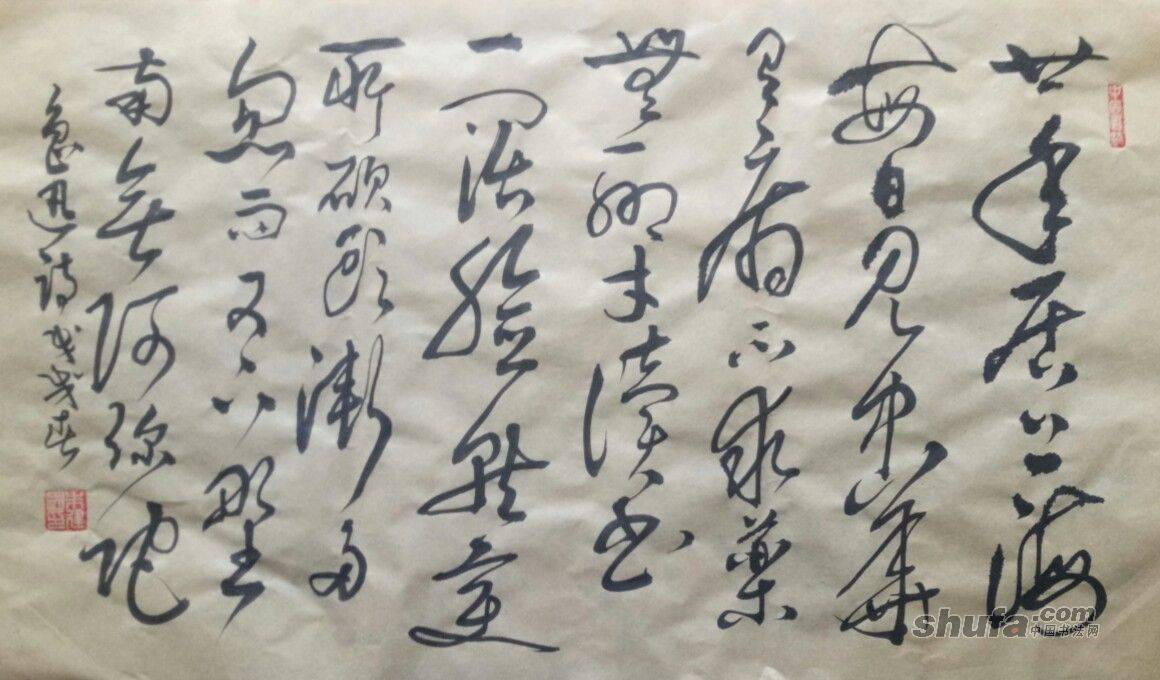 廿年居上海
每日见中華
有病不求藥
無聊才读书
一阔脸就变
所砍头漸多
忽而又下野
南無阿弥陀
鲁迅诗戊戌春
shufa.com
中国书法网